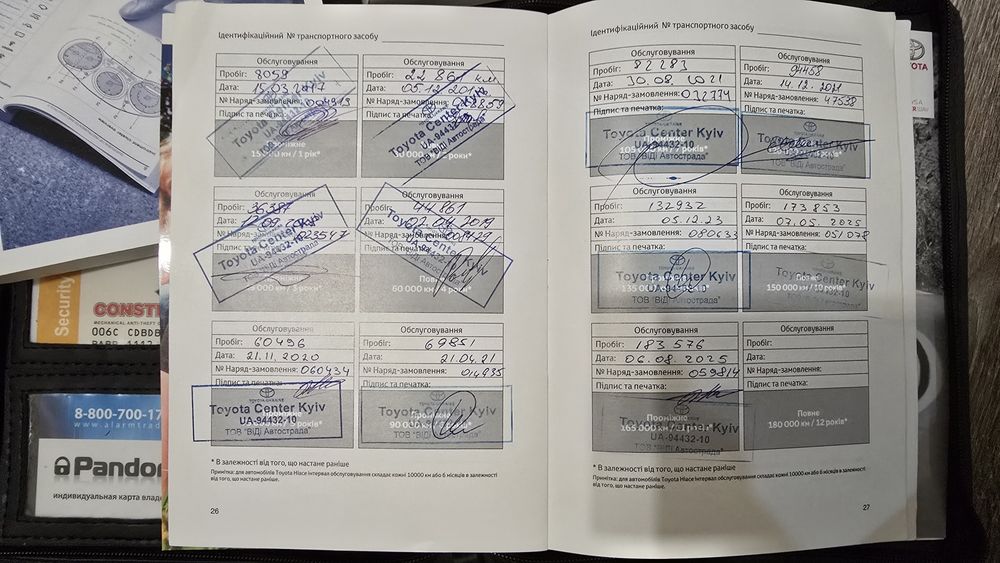 Ідентифікаційний № транспортного засобу
Обслуговування
Пробіг: 8059
Дата: 15.03.2017
№ Наряд-замовлення: 004913
Підпис та печатка:
Toyota Center Kyiv
UA-94432-10
15 000 км / 1 рік*
Обслуговування
Пробіг: 22 861 км
Дата: 05.12.201
№ Наряд-замовлення:
Підпис та печатка:
Toyota Center Kyiv
UA-94432-10
ТОВ "ВіДі Автострада"
Обслуговування
Пробіг: 36387
Дата:
№ Наряд-замовлення: 023547
Підпис та печатка:
Toyota Center Kyiv
UA-94432-10
ТОВ "ВіДі Автострада"
000 км / 3 роки*
Обслуговування
Пробіг: 44 861
Дата: 02.04.2019
№ Наряд-замовлення:
Підпис та печатка:
Toyota Center Kyiv
UA-94432-10
ТОВ "ВіДі Автострада"
60 000 км / 4 роки*
Обслуговування
Пробіг: 60496
Дата: 21.11.2020
№ Наряд-замовлення: 060434
Підпис та печатка:
Toyota Center Kyiv
UA-94432-10
ТОВ "ВіДі Автострада"
Обслуговування
Пробіг: 69851
Дата: 21.04.21
№ Наряд-замовлення: 014935
Підпис та печатка:
Toyota Center Kyiv
UA-94432-10
90 000 км /
ТОВ "ВіДі Автострада"
* В залежності від того, що настане раніше
Примітка: для автомобілів Toyota Hiace інтервал обслуговування складає кожні 10000 км або 6 місяців в залежності
від того, що настане раніше.
26
Ідентифікаційний № транспортного засобу
Обслуговування
Пробіг: 82 283
Дата: 30.08.2021
№ Наряд-замовлення: 032774
Підпис та печатка:
Toyota Center Kyiv
UA-94432-10
105 000 км / 7 років*
ТОВ "ВіДі Автострада"
Обслуговування
Пробіг: 94458
Дата: 14.12.2021
№ Наряд-замовлення: 47538
Підпис та печатка:
Toyota Center Kyiv
ТОВ "ВіДі Автострада"
Обслуговування
Пробіг: 132932
Дата: 05.12.23
№ Наряд-замовлення: 080633
Підпис та печатка:
Toyota Center Kyiv
UA-94432-10
135 000 км /
ТОВ "ВіДі Автострада"
Обслуговування
Пробіг: 173 853
Дата: 07.05.2025
№ Наряд-замовлення: 051078
Підпис та печатка:
Toyota Center Kyiv
Повне
150 000 км / 10 років*
ТОВ "ВіДі Автострада"
Обслуговування
Пробіг: 183 576
Дата: 06.08.2025
№ Наряд-замовлення: 059814
Підпис та печатка:
Проміжне
Toyota Center Kyiv
165 000 км /
UA-94432-10
ТОВ "ВіДі Автострада"
Обслуговування
Пробіг:
Дата:
№ Наряд-замовлення:
Підпис та печатка:
Повне
180 000 км / 12 років*
* В залежності від того, що настане раніше
Примітка: для автомобілів Toyota Hiace інтервал обслуговування складає кожні 10000 км або 6 місяців в залежності
від того, що настане раніше.
27
Security
CONST
MECHANICAL ANTI-THEFT
006C CDBDB
8-800-700-17
www.alarmtrad
Pandor
индивидуальная карта владе